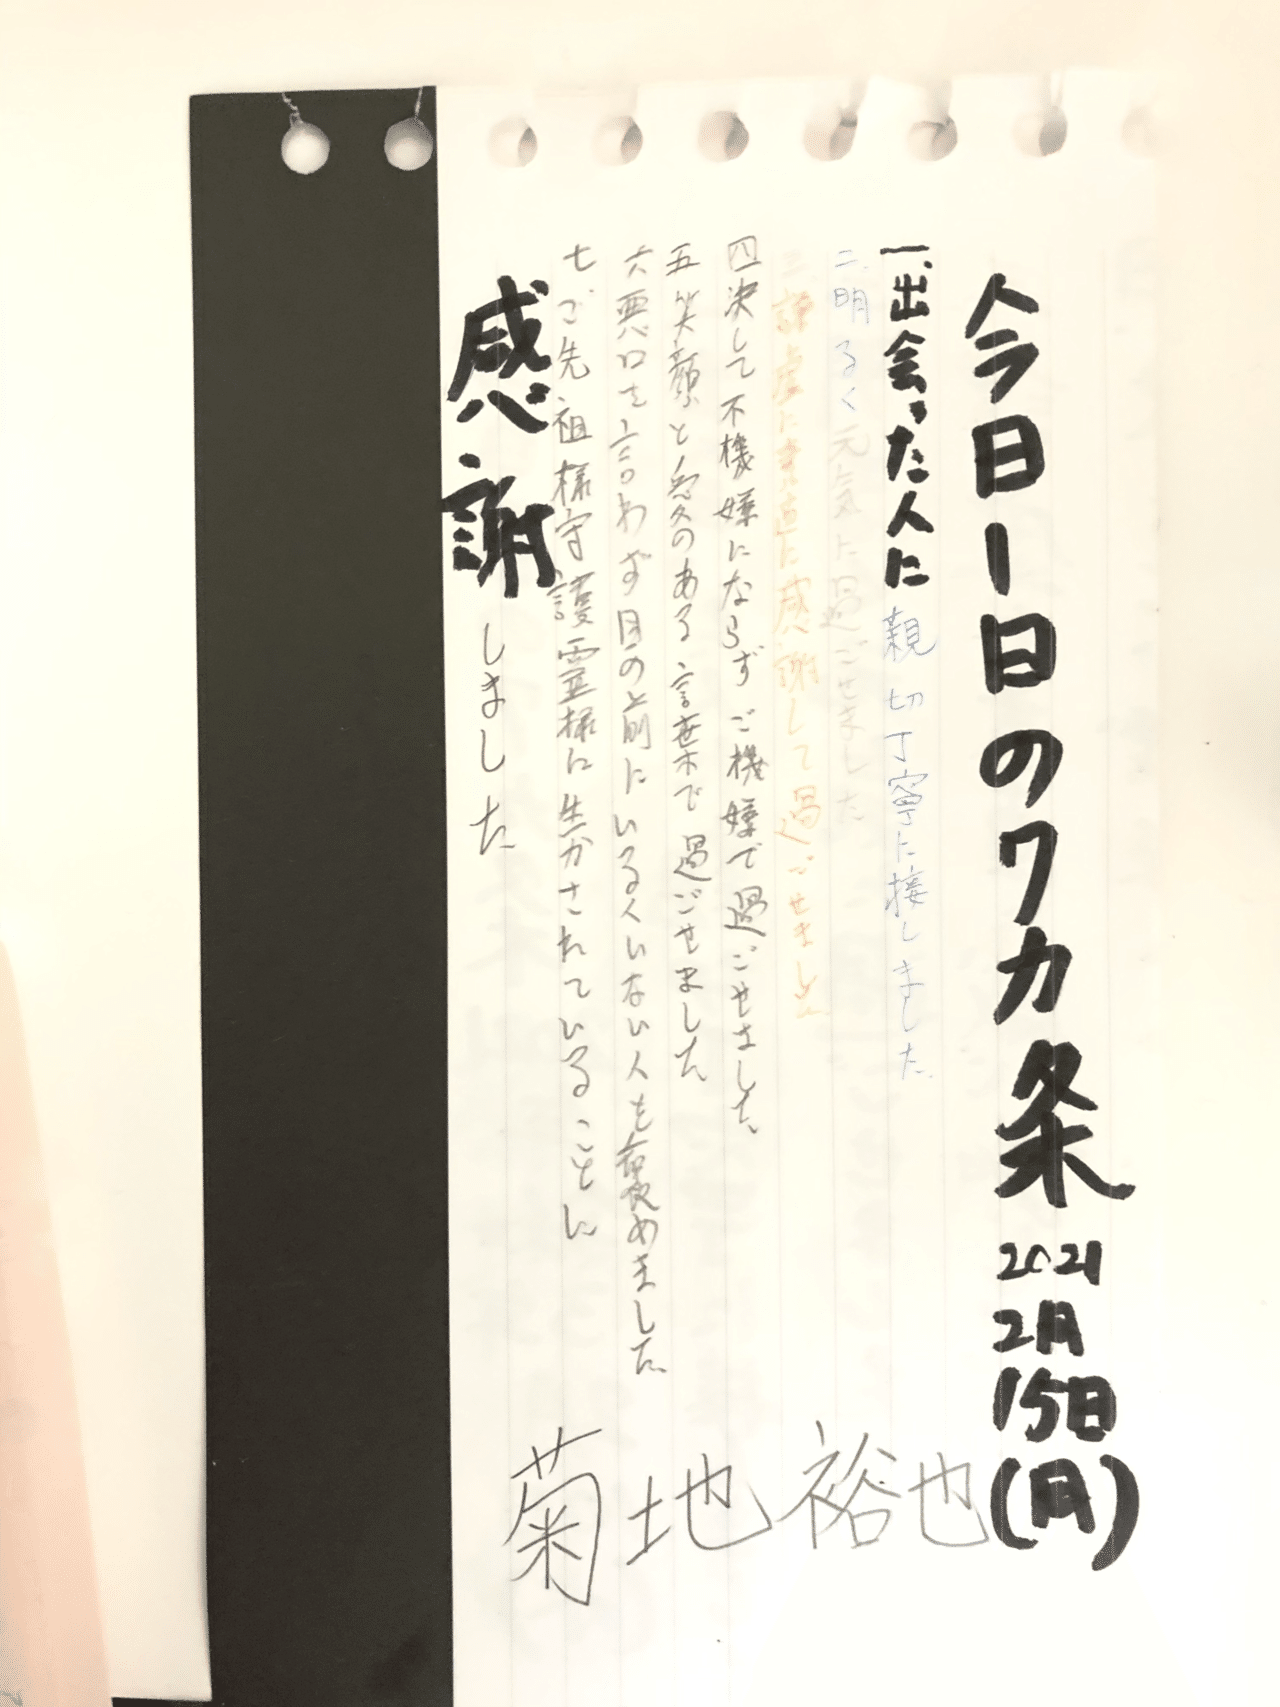 今日1日の7カ条 2021 2月 15日 (月)
一、出会った人に親切丁寧に接しました
二、明るく元気に過ごせました
三、謙虚に素直に感謝して過ごせました
四決して不機嫌にならずご機嫌で過ごせました
五笑顔と愛のある言葉で過ごせました
六悪口を言わず目の前にいる人いない人を褒めました
七ご先祖様守護霊様に生かされていることに
感謝しました
菊地裕也